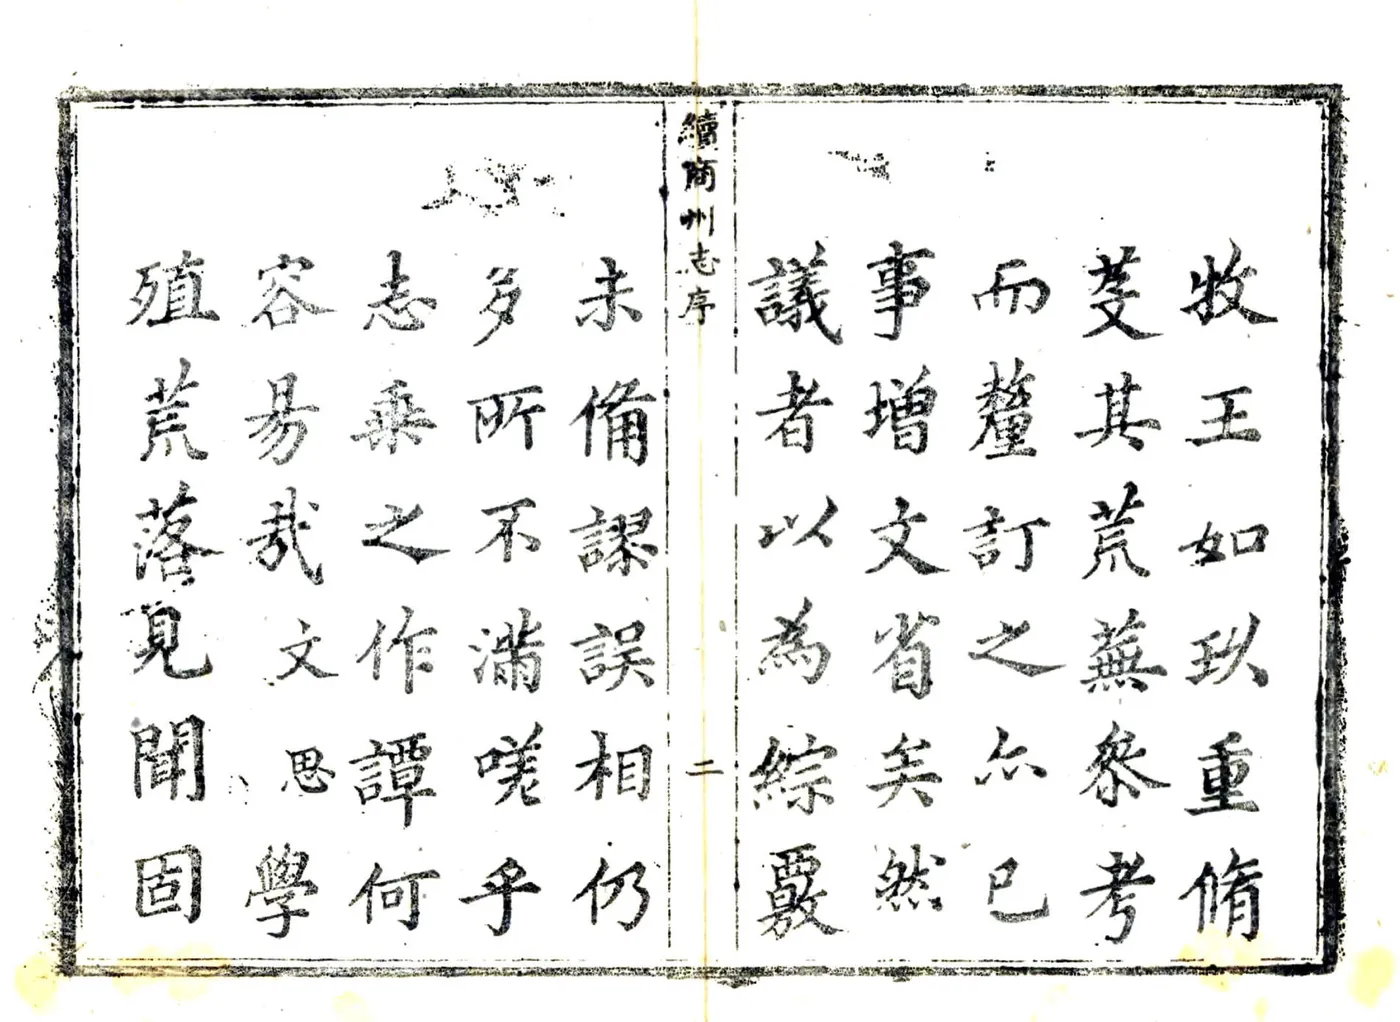 牧王如玖重脩
芟其荒蕪叅考
而釐訂之亦已
事增文省矣然
議者以為綜覈
續商州志序
二
未備謬誤相仍
多所不滿嗟乎
志乘之作譚何
容易哉文思學
殖荒落見聞固